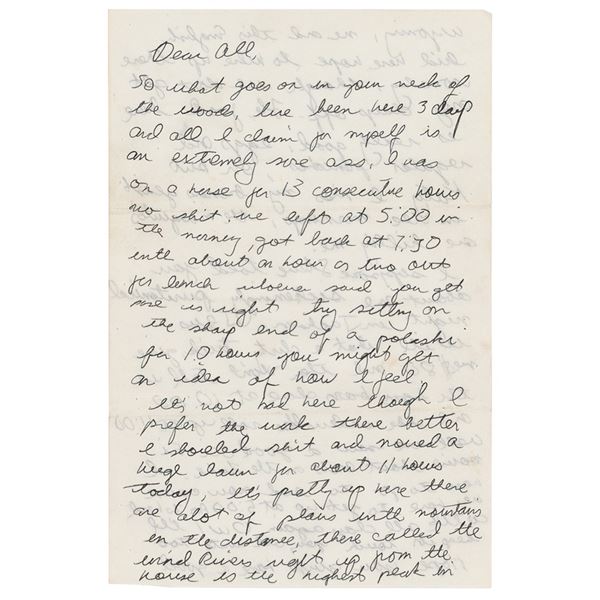 Dear All
So what goes on in your neck of
the woods, Ive been here 3 days
and all I claim for myself is
an extremely sore ass, I was
on a horse for 13 consecutive hours
no shit, we left at 5:00 in
the morning, got back at 7:30
with about an hour or two out
for lunch whoever said you get
sore is right try sitting on
the sharp end of a polaski
for 10 hours you might get
an idea of how I feel
It's not bad here though I
prefer the work there better
I shoveled shit and mowed a
huge lawn for about 11 hours
today, It's pretty up here there
are alot of plains with mountains
in the distance, there called the
Wind Rivers right up from the
house is the highest peak in